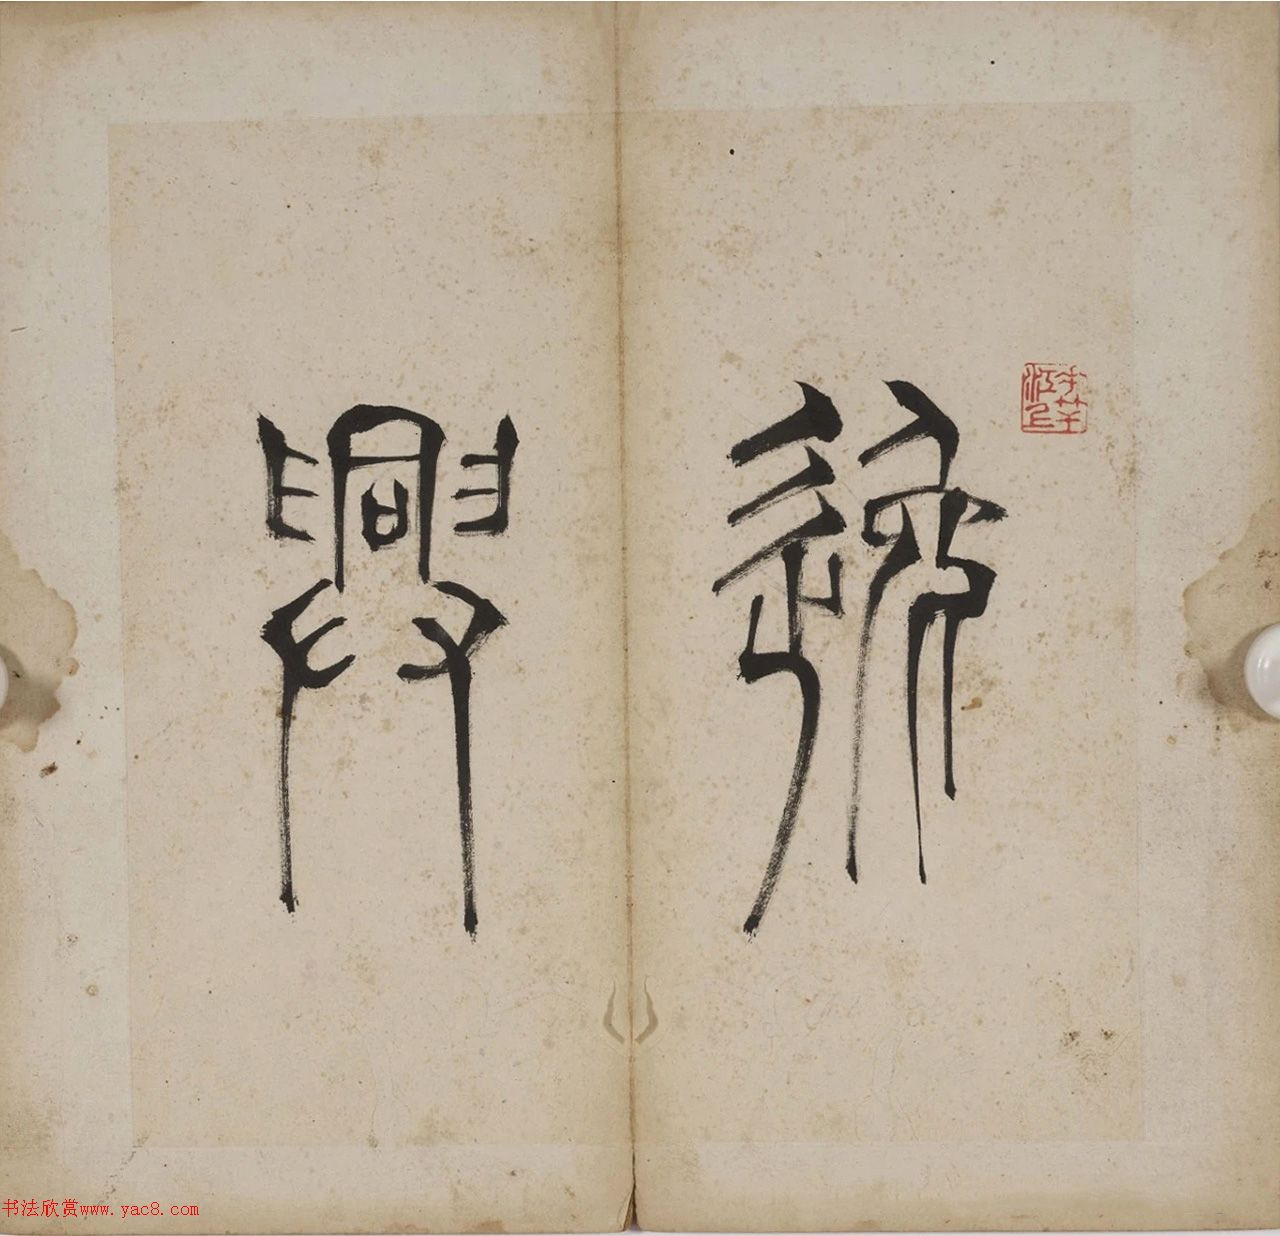 逸興
书法欣赏www.yac8.com